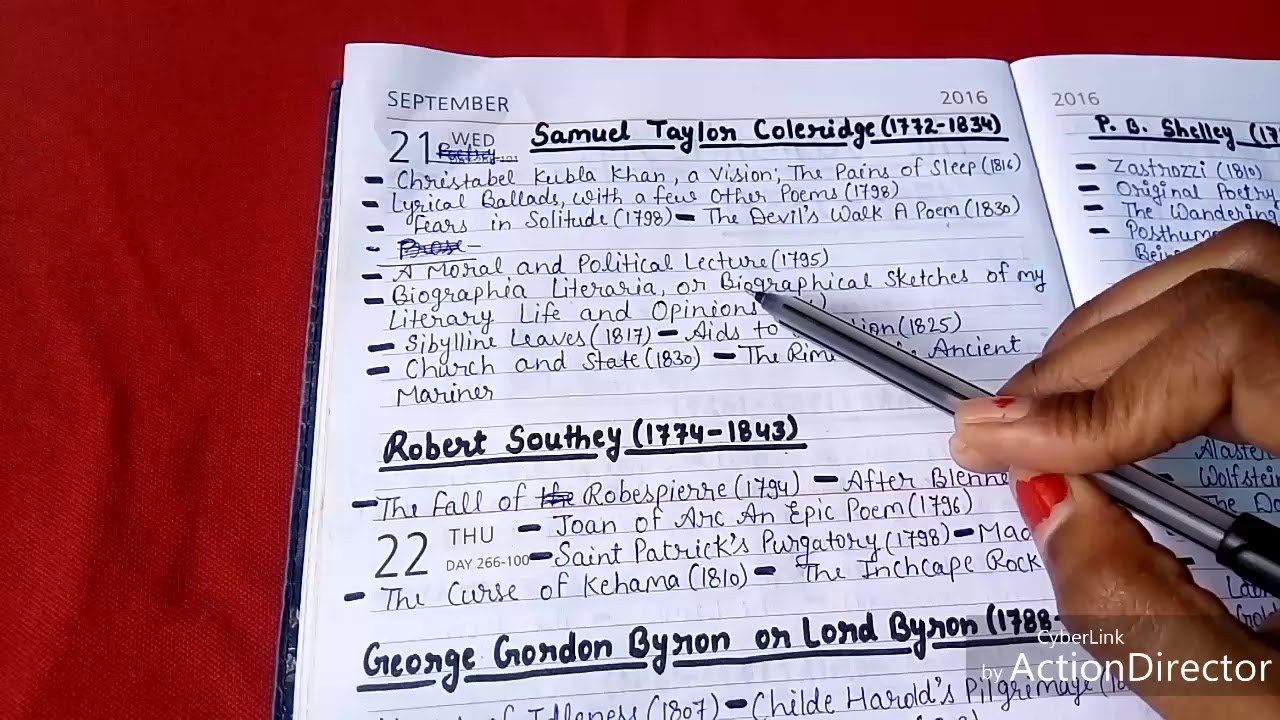 SEPTEMBER 2016
21 WED Samuel Taylor Coleridge (1772-1834)
- Christabel Kubla Khan, a Vision; The Pains of Sleep (1816)
- Lyrical Ballads, with a few Other Poems (1798)
- Fears in Solitude (1798) - The Devil's Walk A Poem (1830)
- A Moral and Political Lecture (1795)
- Biographia Literaria, or Biographical Sketches of my
Literary Life and Opinions
- Sibylline Leaves (1817) - Aids to (1825)
- Church and State (1830) - The Rime Ancient
Mariner
Robert Southey (1774-1843)
- The Fall of Robespierre (1794) - After
22 THU - Joan of Arc An Epic Poem (1796)
DAY 266-100 - Saint Patrick's Purgatory (1798) -
- The Curse of Kehama (1810) - The Inchcape Rock
George Gordon Byron or Lord Byron (1788-
Idleness (1807) - Childe Harold's Pilgrimage
2016
P. B. Shelley (17
- Zastrozzi (1810)
- Original Poetry
- The Wandering
- Posthum
Bein
CyberLink
by ActionDirector